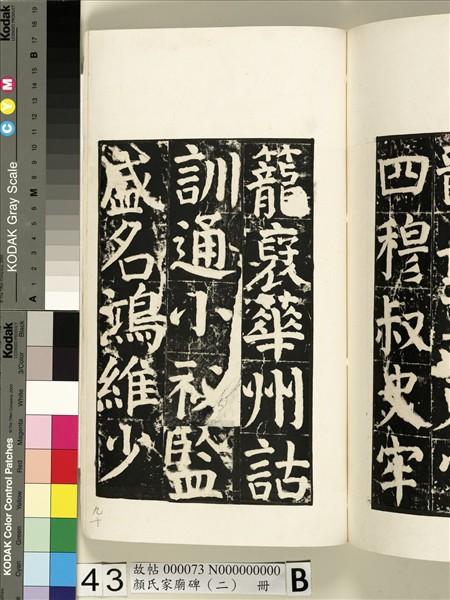 四穆叔史牢
籠襃華州詁
訓通小秘監
盛名鴻維少
九十
43
故帖 000073 N000000000
顏氏家廟碑（二） 冊
B
Kodak
KODAK Gray Scale
C Y M
A 1 2 3 4 5 6 M 8 9 10 11 12 13 14 15 B 17 18 19
Kodak
KODAK Color Control Patches
Blue Cyan Green Yellow Red Magenta White 3/Color Black